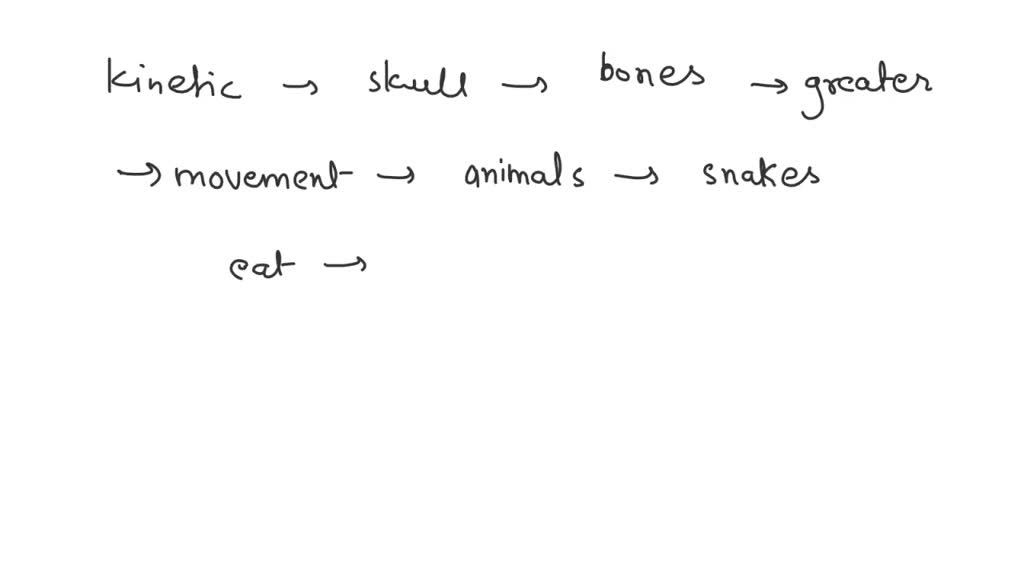 kinetic → skull → bones → greater
→ movement → animals → snakes
eat →